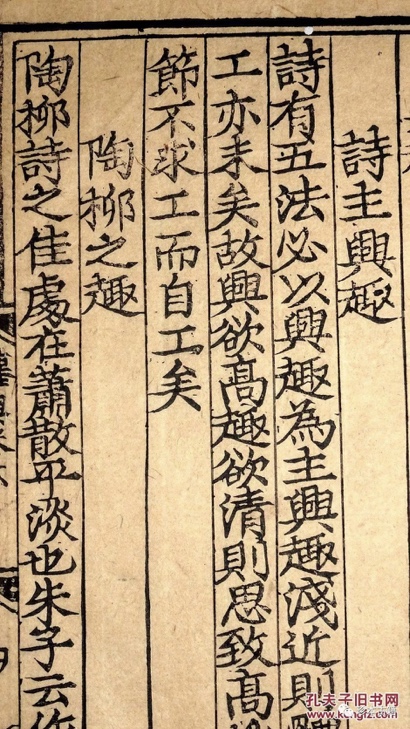 詩主興趣
詩有五法必以興趣為主興趣淺近則
工亦末矣故興欲高趣欲清則思致高
節不求工而自工矣
陶柳之趣
陶柳詩之佳處在蕭散平淡也朱子云作
孔夫子旧书网
www.kongfz.com